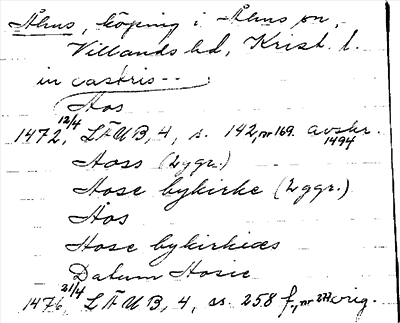 Åhus, köping i Åhus sn,
Villands hd, Krist. l.
in castris --
Aos
1472 12/4, LÄUB, 4, s. 142, nr 169. avskr. 1494
Aoss (2 ggr.)
Aose bykirke (2 ggr.)
Aos
Aose bykirkiæs
Datum Aosie
1476 21/4, LÄUB, 4, ss. 258 f., nr orig.